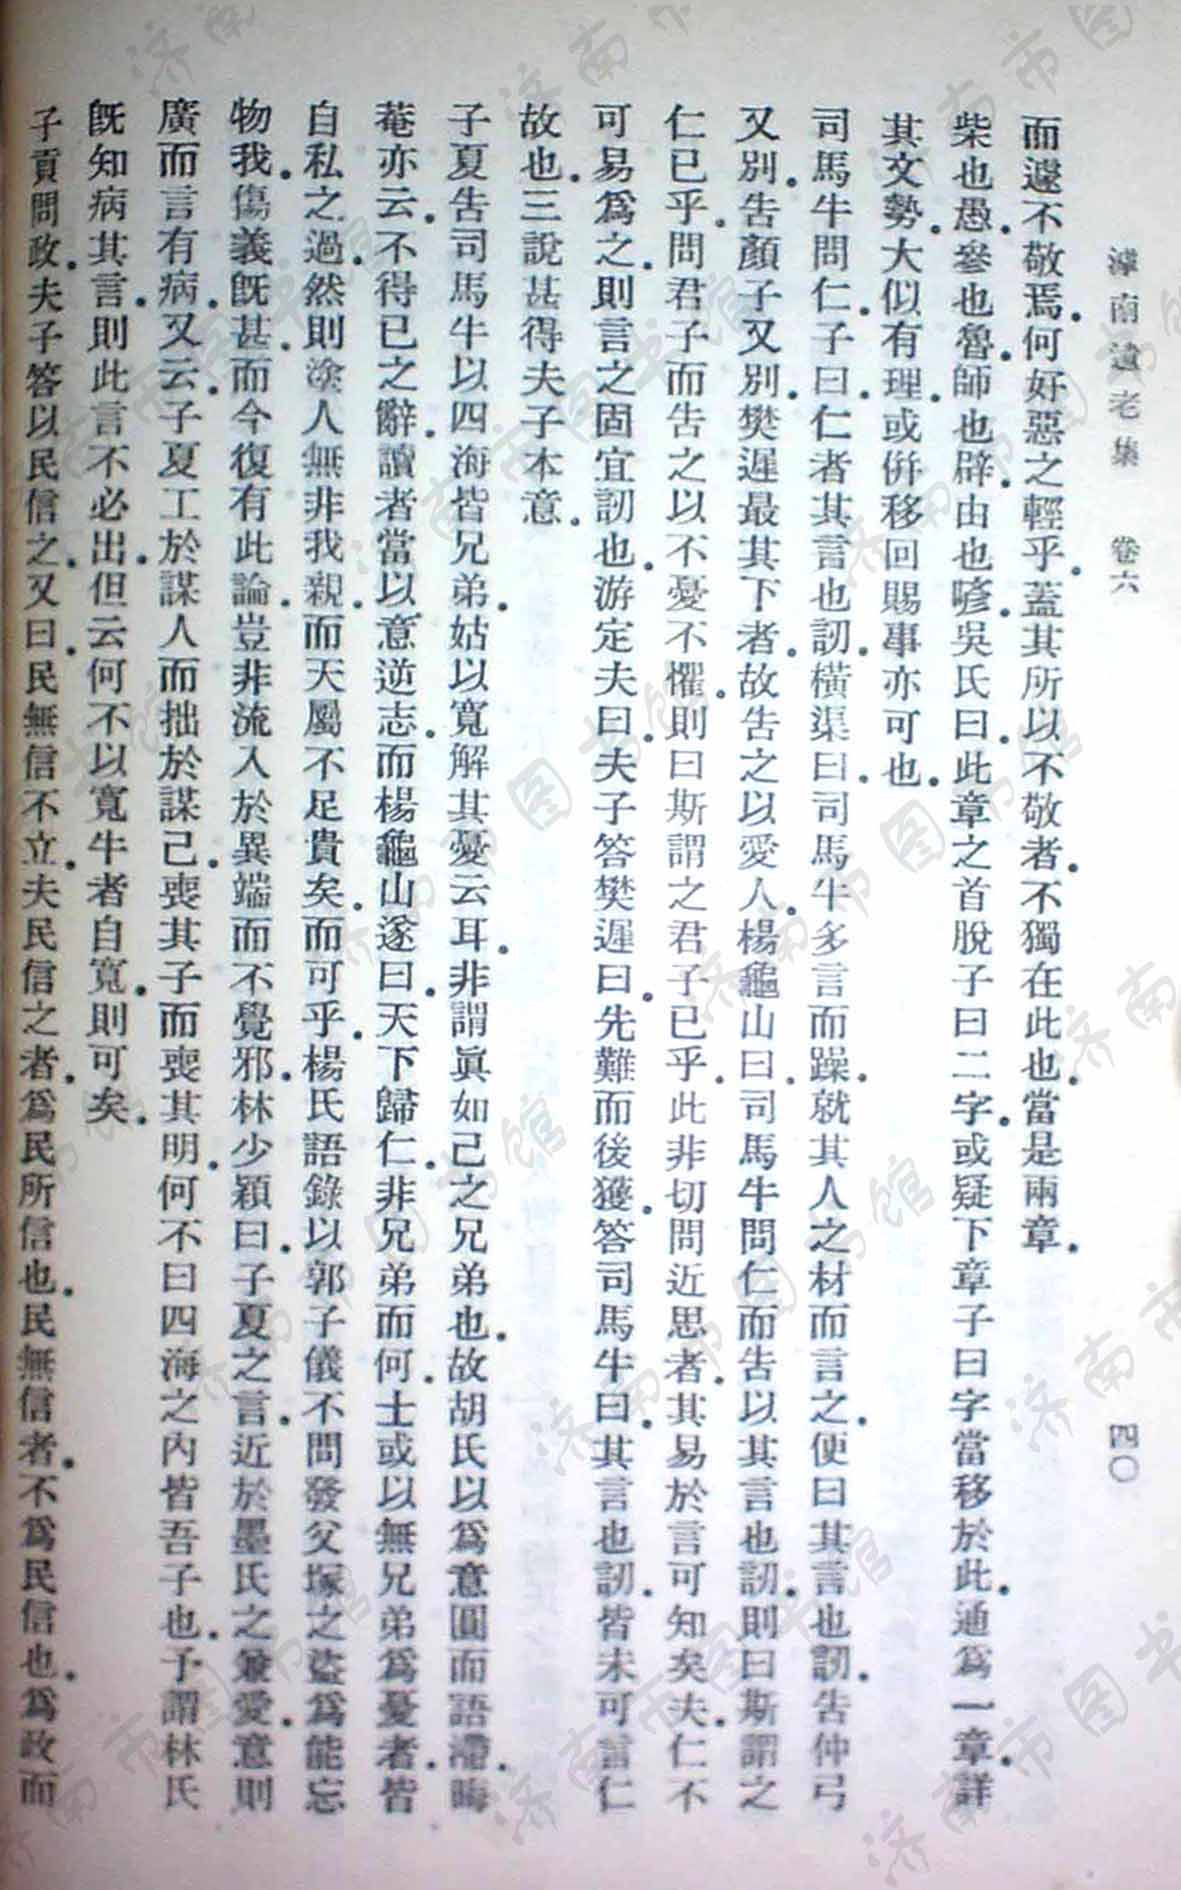 滹南遺老集　卷六　四〇
而遽不敬焉。何好惡之輕乎。蓋其所以不敬者。不獨在此也。當是兩章。
柴也愚。參也魯。師也辟。由也喭。吳氏曰。此章之首脫子曰二字。或疑下章子曰字當移於此。通爲一章。詳
其文勢。大似有理。或併移回賜事亦可也。
司馬牛問仁。子曰。仁者其言也訒。橫渠曰。司馬牛多言而躁。就其人之材而言之。便曰其言也訒。告仲弓
又別。告顏子又別。樊遲最其下者。故告之以愛人。楊龜山曰。司馬牛問仁而告以其言也訒。則曰斯謂之
仁已乎。問君子而告之以不憂不懼。則曰斯謂之君子已乎。此非切問近思者。其易於言可知矣。夫仁不
可易爲之。則言之固宜訒也。游定夫曰。夫子答樊遲曰。先難而後獲。答司馬牛曰。其言也訒。皆未可言仁
故也。三說甚得夫子本意。
子夏告司馬牛以四海皆兄弟。姑以寬解其憂云耳。非謂眞如己之兄弟也。故胡氏以爲意圓而語滯。晦
菴亦云。不得已之辭。讀者當以意逆志。而楊龜山遂曰。天下歸仁。非兄弟而何。士或以無兄弟爲憂者。皆
自私之過。然則塗人無非我親。而天屬不足貴矣。而可乎。楊氏語錄以郭子儀不問發父塚之盜爲能忘
物我。傷義旣甚。而今復有此論。豈非流入於異端而不覺邪。林少穎曰。子夏之言。近於墨氏之兼愛。意則
廣而言有病。又云。子夏工於謀人而拙於謀己。喪其子而喪其明。何不曰四海之內皆吾子也。予謂林氏
旣知病其言。則此言不必出。但云何不以寬牛者自寬。則可矣。
子貢問政。夫子答以民信之。又曰。民無信不立。夫民信之者。爲民所信也。民無信者。不爲民信也。爲政而